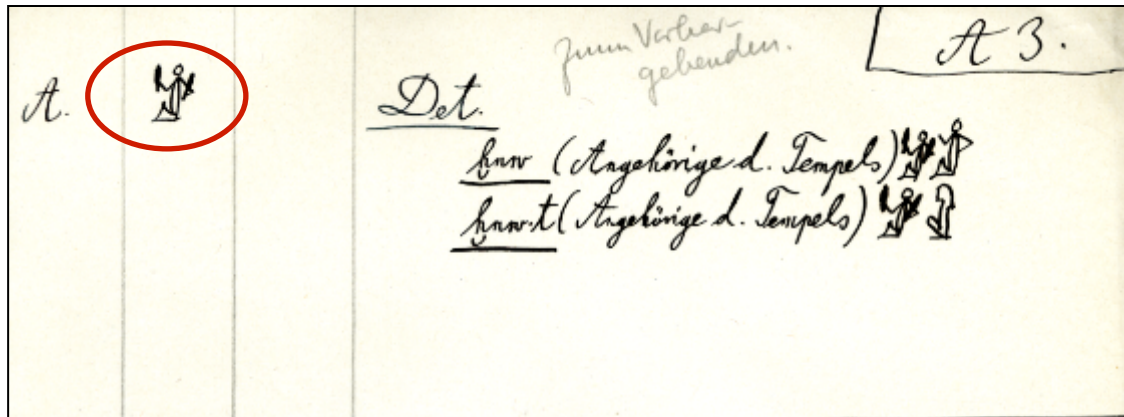 Zum Vorher-
gehenden.
A 3.
A.
Det.
ḫnw (Angehörige d. Tempels)
ḫnw·t (Angehörige d. Tempels)